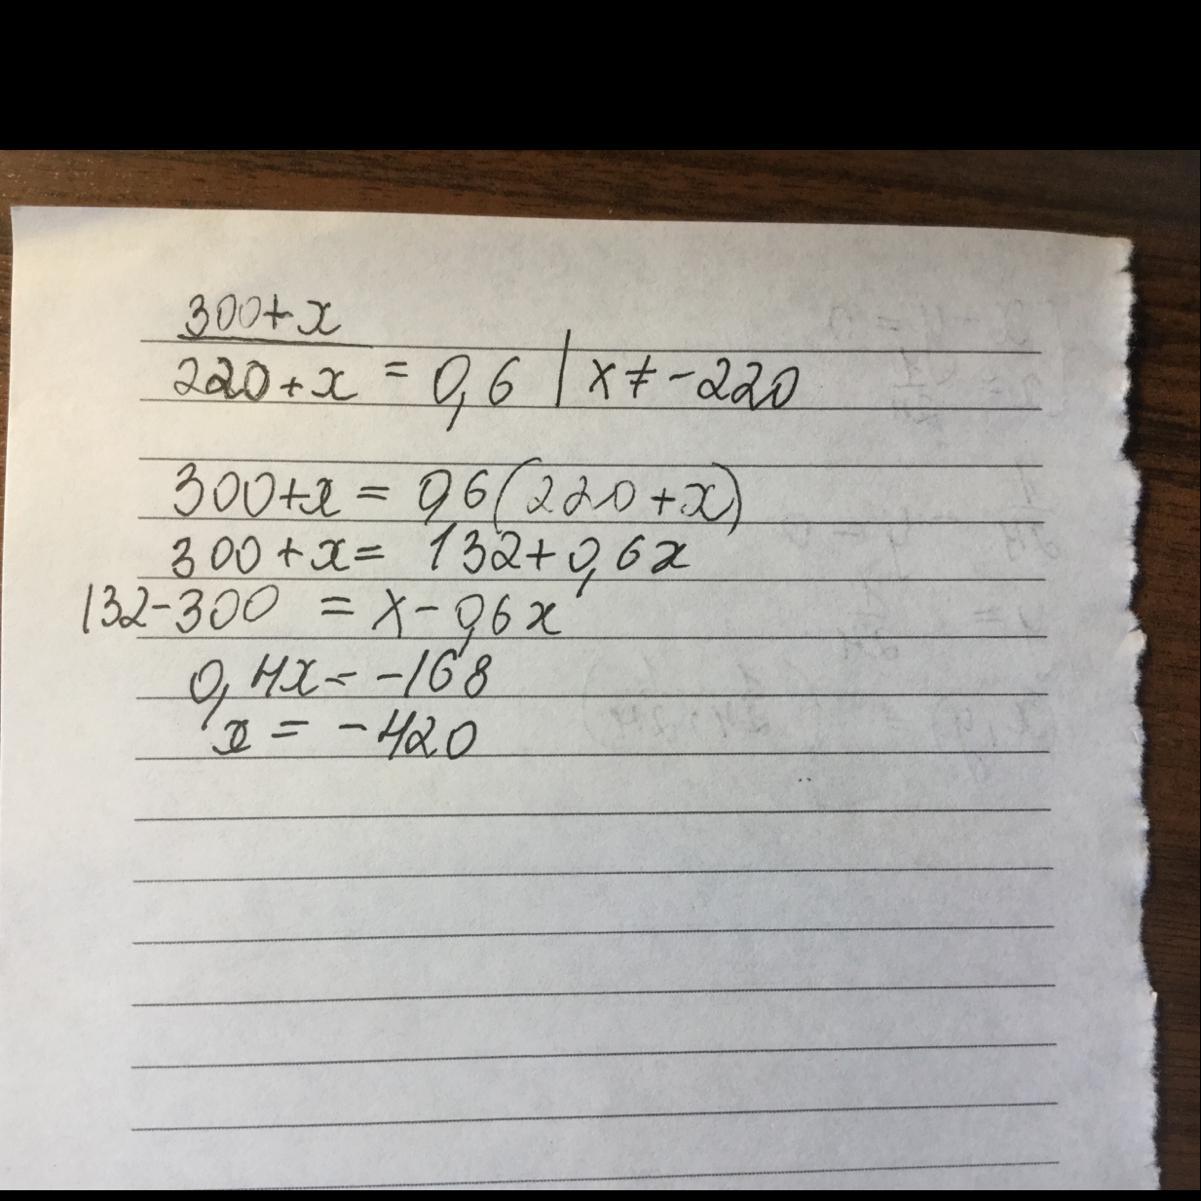 300+x
220+x = 0,6 | x ≠ -220
300+x = 0,6(220+x)
300+x= 132+0,6x
132-300 = x-0,6x
0,4x=-168
x = -420